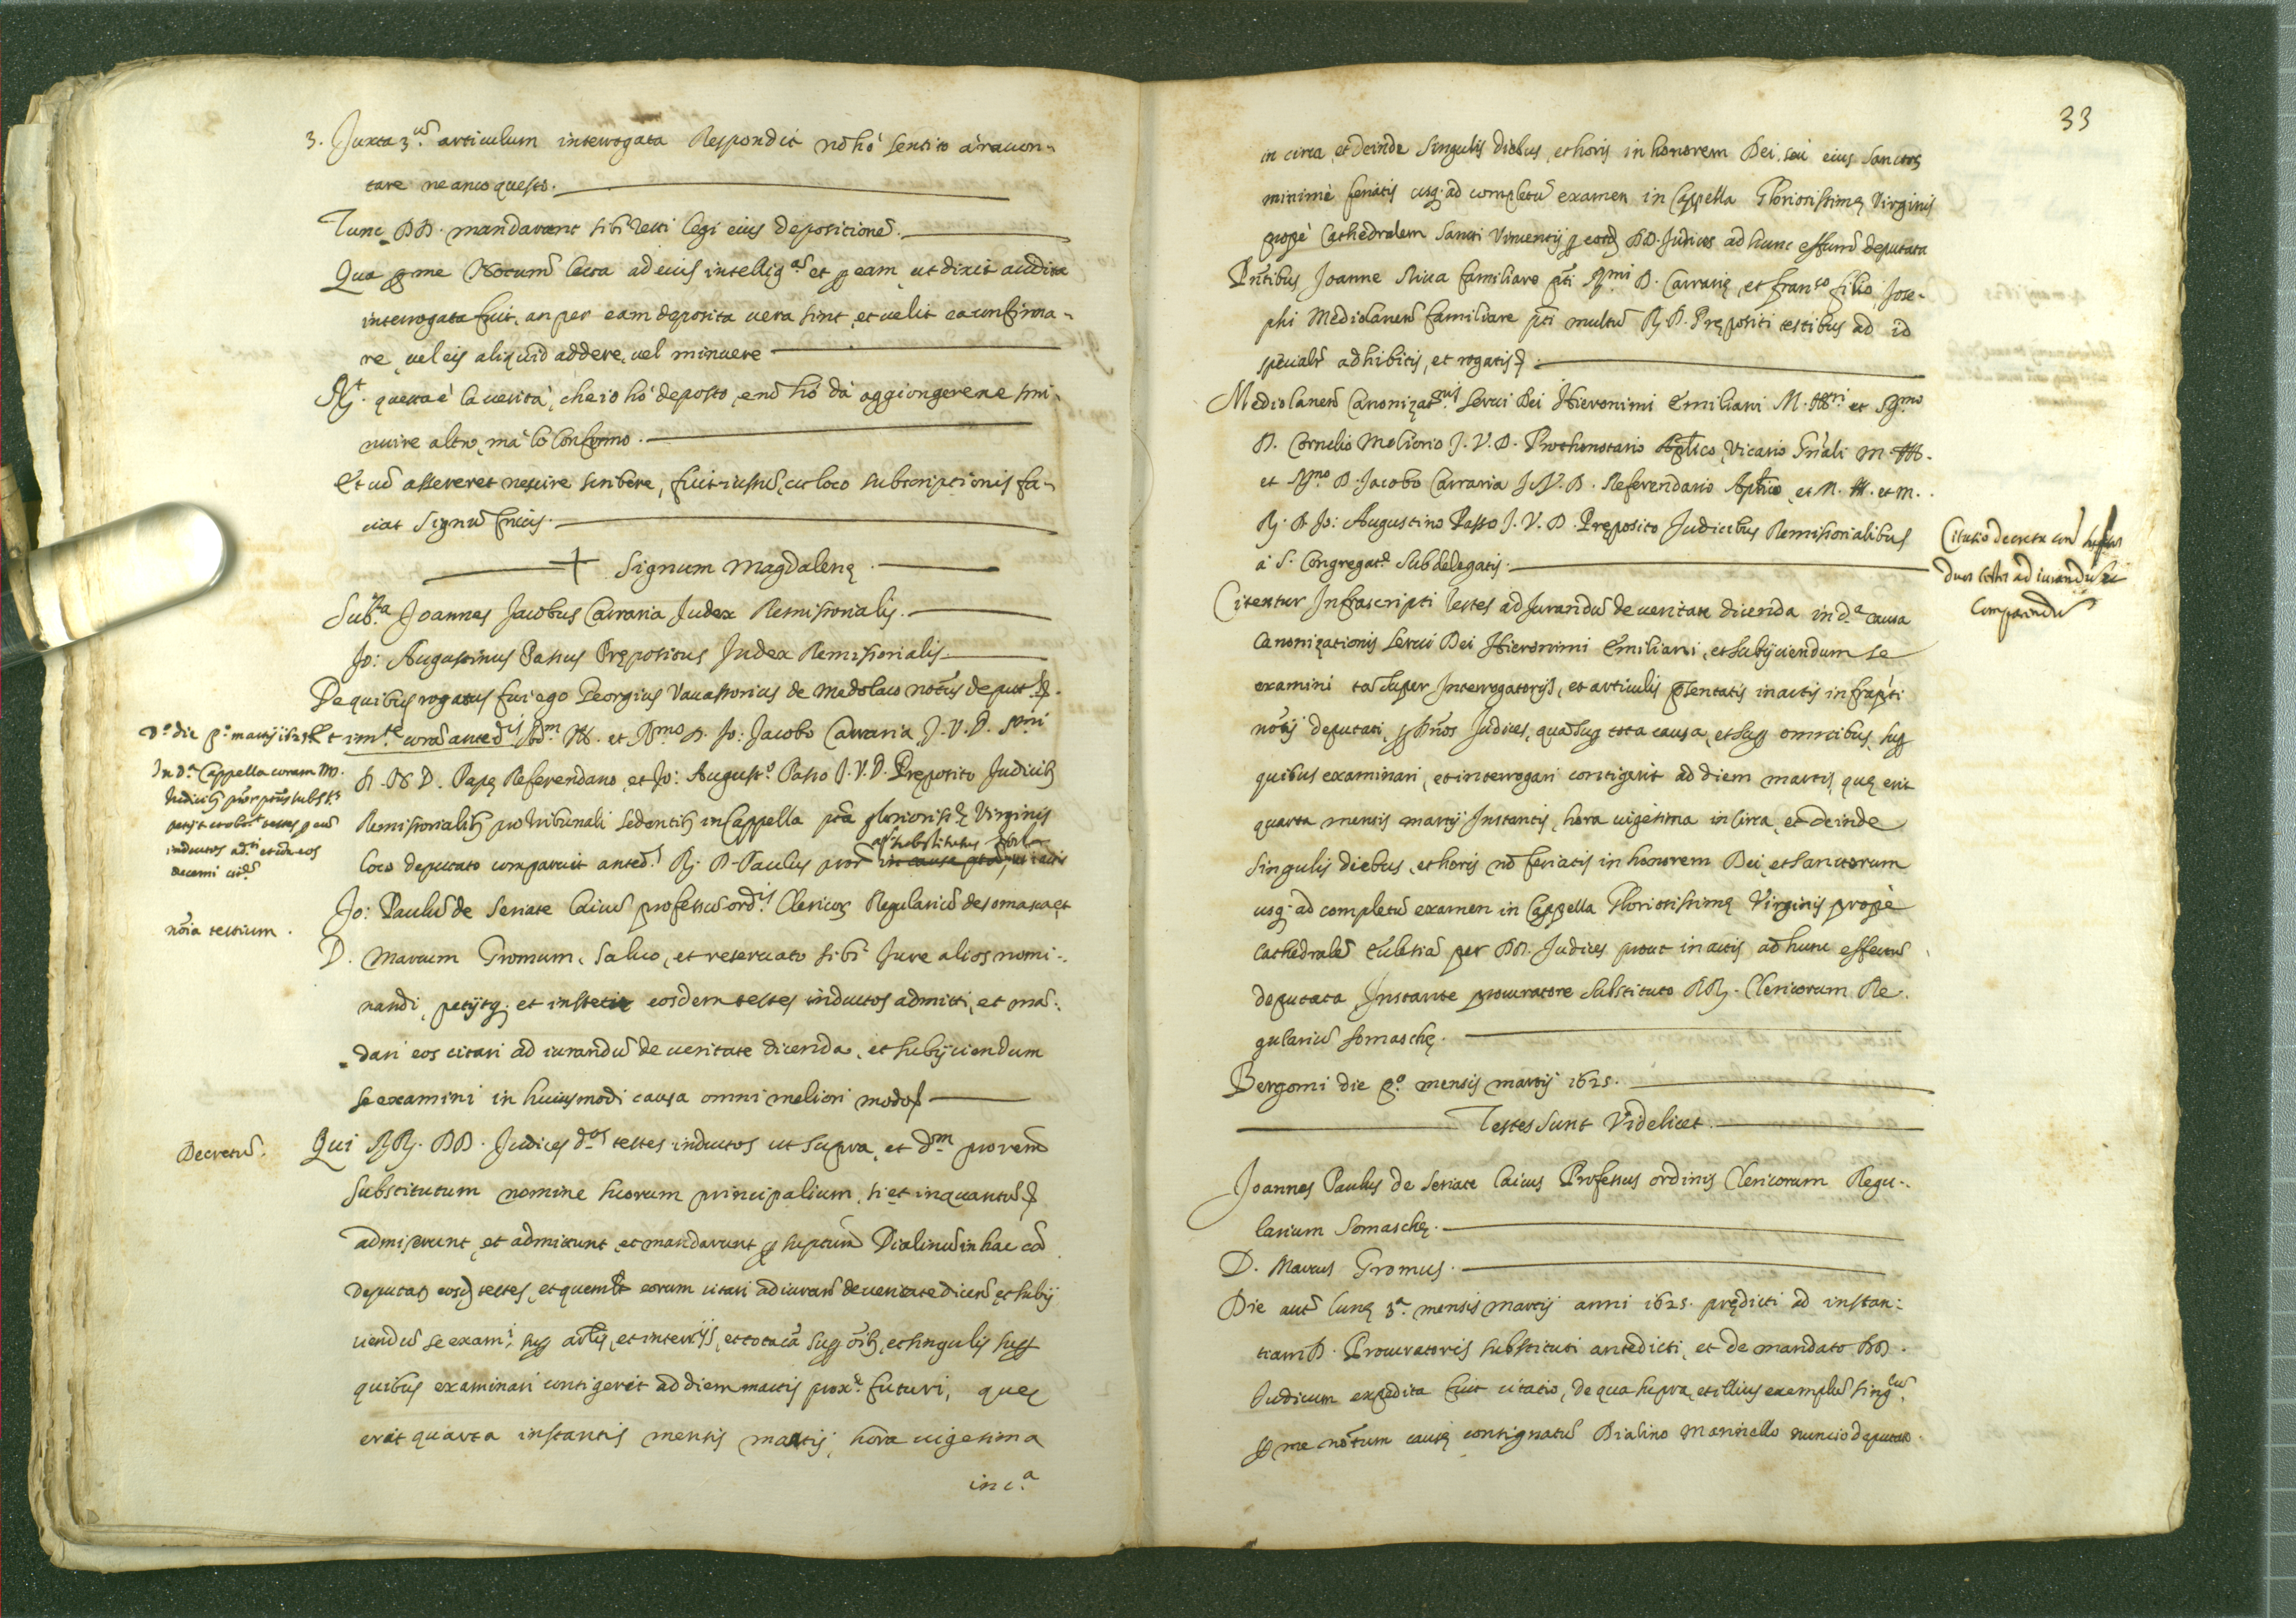 3. Juxta 3.ũ articulum interrogata Respondit nõ hò sentito à racon-
tare ne anco questo.
Tunc DD. mandarunt sibi testi legi eius depositionẽ.
Qua p me Notarium lecta ad eius intellig.ã et p eam, ut dixit audita
interrogata fuit, an per eam deposita vera sint, et velit ea confirma-
re, vel eis aliquid addere, vel minuere
R.t questa è la verità, che io hò deposto, e nõ hò da aggiongere ne smi-
nuire altro, mà lo confermo.
Et cũ assereret nescire scribere, fuit iussũ, ut loco subscriptionis fa-
ciat Signũ Crucis.
+ Signum Magdalenę
Sub.ta Joannes Jacobus Carraria Judex Remissorialis.
Jo: Augustinus Passus Prępositus Judex Remissorialis
De quibus rogatus fui ego Georgius Vavassorius de Medolaco notũs deput.
D.o die p.o martij 1625 et im.te corã anted.is Adm. Ill. et R.mo D. Jo: Jacobo Carraria J. V. D. S.mi
In d.a Cappella coram
D. N. D. Papę Referendario, et Jo: August.o Passo J. V. D. Pręposito Judicib
Remissorialib pro tribunali sedentib in Cappella pta gloriosissę Virginis
substitutus
loco deputato comparuit anted.s R. D. Paulus
inductos
nõia testium.
Jo: Paulũ de Seriate laicũ professũ ord.is Clericor Regulariũ de somasca, et
D. Marcum Gromum, salvo, et reservato sibi Jure alios nomi-
nandi, petijtq. et institit eosdem testes inductos admitti, et mã-
dari eos citari ad iurandũ de veritate dicenda, et subijciendum
se examini in huiusmodi causa omni meliori modo
Decretũ.
Qui RR. DD. Judices d.os testes inductos ut supra, et d.m procrem
Substitutum nomine suorum principalium, si et inquantũ
admiserunt, et admittunt, et mandarunt p suptum Dialinũ in hac cã
deputat eosd testes, et quemlt eorum citari ad iurand de veritate dicend et subij
ciendũ se exami, sup artlis, et interrijs, et tota cã sup oĩb, et singulis sup
quibus examinari contigerit ad diem martis prox.e futuri, quę
erit quarta instantis mensis martij, hora vigesima
in c.a
33
in circa, et deinde singulis diebus, et horis in honorem Dei, seu eius sanctor
minimè feriatis usq. ad completũ examen in Cappella Gloriosissimę Virginis
propè Cathedralem Sancti Vincentij p eosd DD. Judices ad hunc effectũ deputata
Pñtibus Joanne Riva familiare pti R.mi D. Carrarię, et Fran.co filio Jose-
phi Mediolanen familiare pti multũ R. D. Prępositi testibus ad id
specialr adhibitis, et rogatis
Mediolanen Canonizat.nis Servi Dei Hieronimi Emiliani M. Ill.ri et R.mo
D. Cornelio Meliorio J. V. D. Prothonotario Aplico, Vicario Gñali M. Ill.
et R.mo D. Jacobo Carraria J. V. D. Referendario Aplico, et M. Ill. et m.
R. D. Jo: Augustino Passo J. V. D. Pręposito Judicibus Remissorialibus
à S. Congregat.e Subdelegatis.
Citatio decreta
duos testes ad iurandũ et
Comparendũ
Citentur Infrascripti testes ad Jurandũ de veritate dicenda in d.a causa
Canonizationis Servi Dei Hieronimi Emiliani, et subijciendum se
examini tã super Interrogatorijs, et articulis pręsentatis in actis infrapti
notij deputati, p Dños Judices, quã sup tota causa, et sup omnibus, sup
quibus examinari, et interrogari contigerit ad diem martis, quę erit
quarta mensis martij Instantis, hora vigesima in circa, et deinde
singulis diebus, et horis nõ feriatis in honorem Dei, et sanctorum
usq. ad completũ examen in Cappella Gloriosissimę Virginis propè
Cathedralẽ Ecclesiã per DD. Judices prout in actis ad hunc effectũ
deputata, Instante procuratore substituto RR. Clericorum Re-
gulariũ Somaschę.
Bergomi die p.o mensis martij 1625.
Testes sunt Videlicet
Joannes Paulus de Seriate laicus Professus ordinis Clericorum Regu-
larium Somaschę.
D. Marcus Gromus.
Die autẽ lunę 3.a mensis martij anni 1625. prędicti ad instan-
tiam D. Procuratoris substituti antedicti, et de mandato DD.
Judicum expedita fuit citatio, de qua supra, et illius exemplũ
p me notum causę consignatũ Dialino Marinello nuncio deputato.